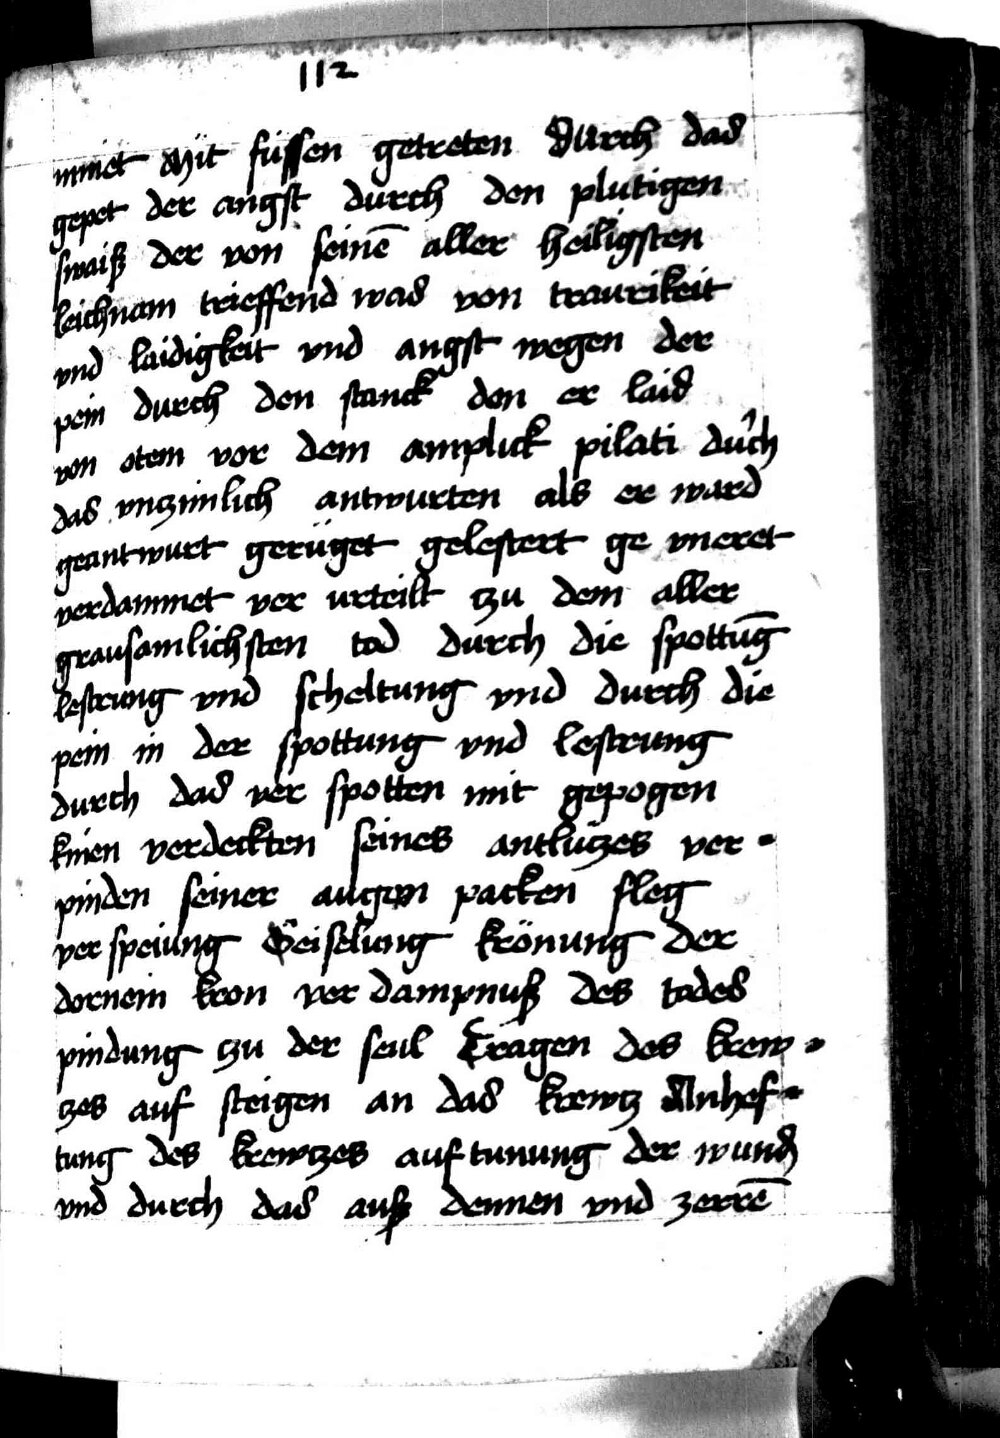 112
mmet Mit füssen getreten Durch das
gepet der angst durch den plutigen
swaiß der von seinē aller heiligsten
leichnam trieffend was von traurikeit
vnd laidigkeit vnd angst wegen der
pein durch den stanck den er laid
von otem vor dem amplick pilati du'ch
das vnczimlich antwurten als er ward
geantwurt gerüget gelestert ge vneret
verdammet ver urteilt czu dem aller
grausamlichsten tod durch die spottūg
lestrung vnd scheltung vnd durch die
pein in der spottung vnd lestrung
durch das ver spotten mit gepogen
knien verdeckten seines antlüczes ver=
pinden seiner augen packen sleg
ver speiung Geiselung krönung der
dornein kron ver dampnuß des todes
pindung czu der seul Tragen des krew=
czes auf steigen an das krewcz Anhef=
tung des krewczes auf tunung der wund
vnd durch das auß dennen vnd zerrē